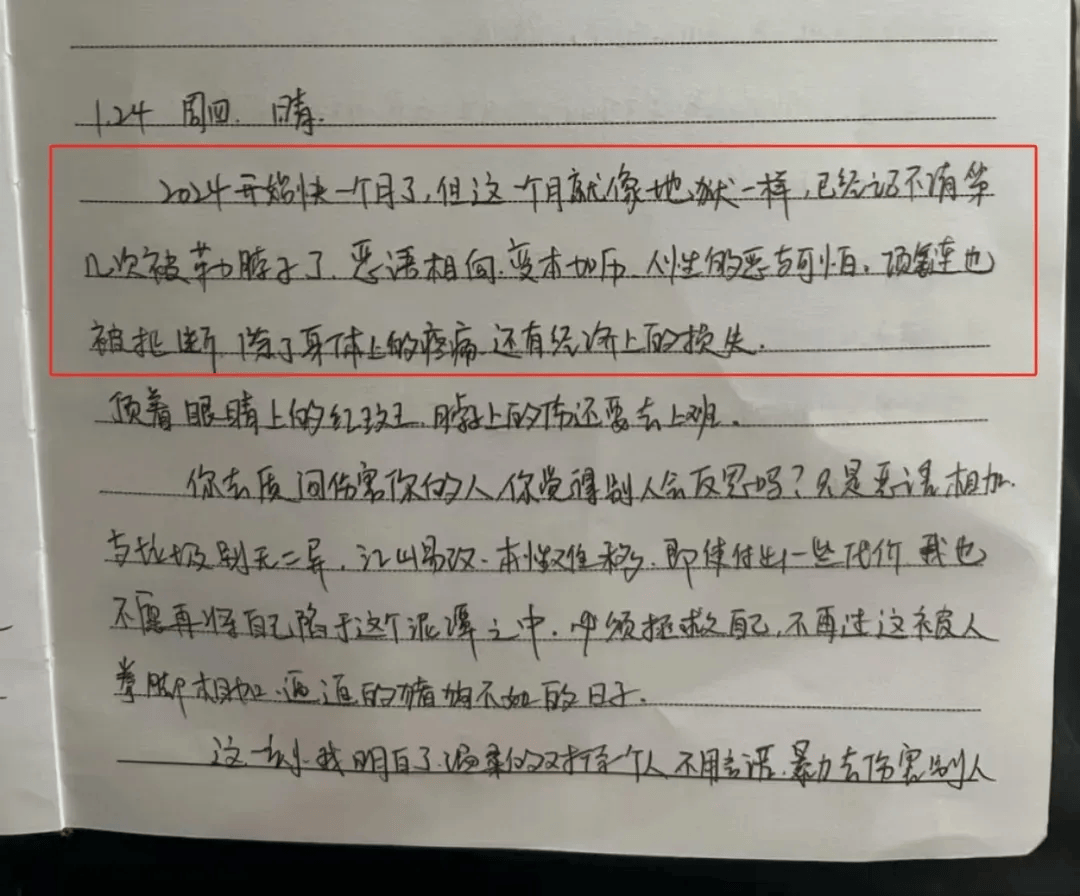 1.24 周四. 晴.
2024开始快一个月了,但这一个月就像地狱一样,已经记不清第
几次被勒脖子了.恶语相向.变本加厉.人性的恶与可怕。项链也
被扯断 除了身体上的疼痛 还有经济上的损失.
顶着眼睛上的红斑,脖子上的伤还要去上班.
你去质问伤害你的人,你觉得别人会反思吗?只是恶语相加.
与垃圾别无二异,江山易改.本性难移.即使付出一些代价 我也
不愿再将自己陷于这个泥潭之中.必须拯救自己,不再过这被人
拳脚相加.逼迫的猪狗不如的日子.
这一刻我明白了.温柔的对待一个人 不用言语.暴力去伤害别人